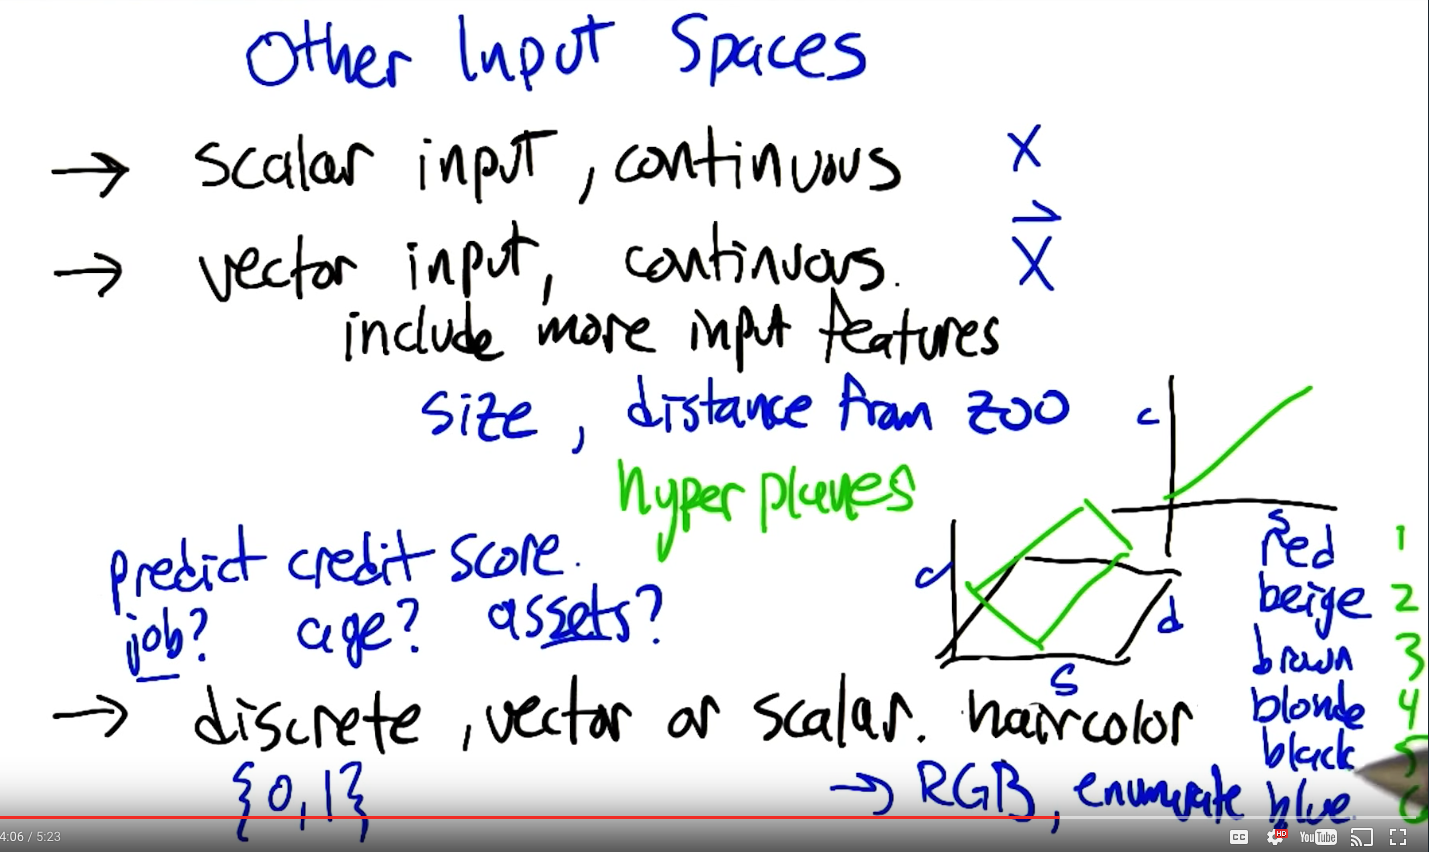 Other Input Spaces
→ scalar input, continuous X
→ vector input, continuous. X
include more input features
size, distance from zoo
c
s
hyperplanes
c
d
s
predict credit score.
job? age? assets?
→ discrete, vector or scalar. haircolor
{0,1}
→ RGB, enumerate
red 1
beige 2
brown 3
blonde 4
black 5
blue 6
4:06 / 5:23
CC
HD
YouTube